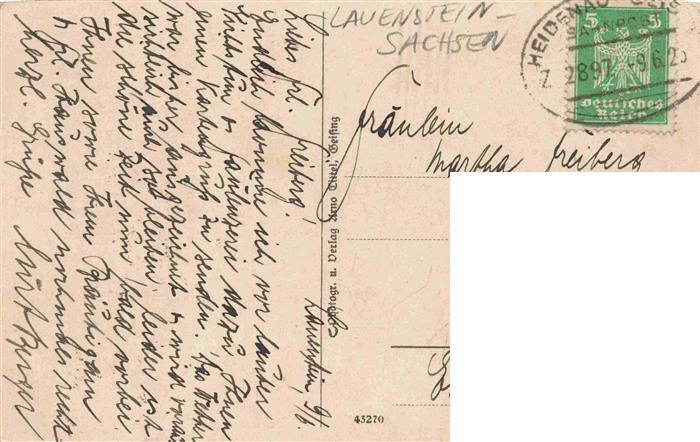 LAUENSTEIN-
SACHSEN
HEIDENAU
BAHNPOST
Z. 2897 -9.6.2
5 5
Deutsches
Reich
Fräulein
Martha Freiberg
Photogr. u. Verlag Arno Tittel, Geising
43270
Lauenstein 9/6.
Liebes Frl. Freiberg!
Endlich komme ich vor lauter
Nichtstun u. Faulenzerei dazu Ihnen
einen Kartengruß zu senden. Das Wetter
war bisher ausgezeichnet u. wird voraus
sichtlich auch so bleiben, leider ist
die schöne Zeit nun bald vorbei.
Ihnen sowie Ihrem Bräutigam
u. Frl. nochmals recht
herzl. Grüße